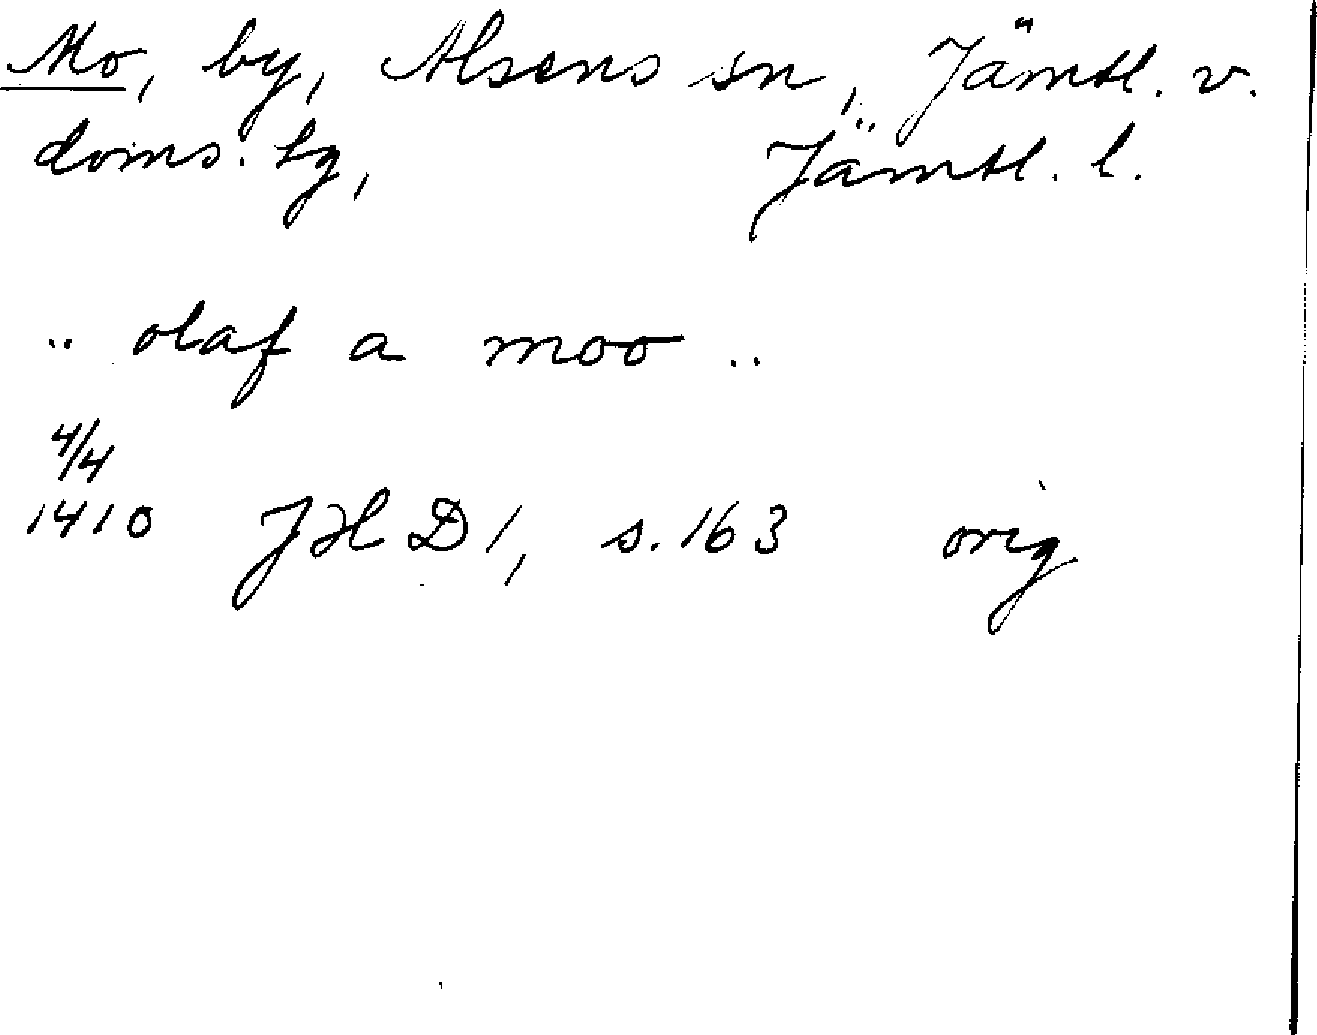 Mo, by, Alsens sn, Jämtl. v.
doms. tg, Jämtl. l.
.. olaf a moo ..
4/4
1410 JHD 1, s. 163 orig